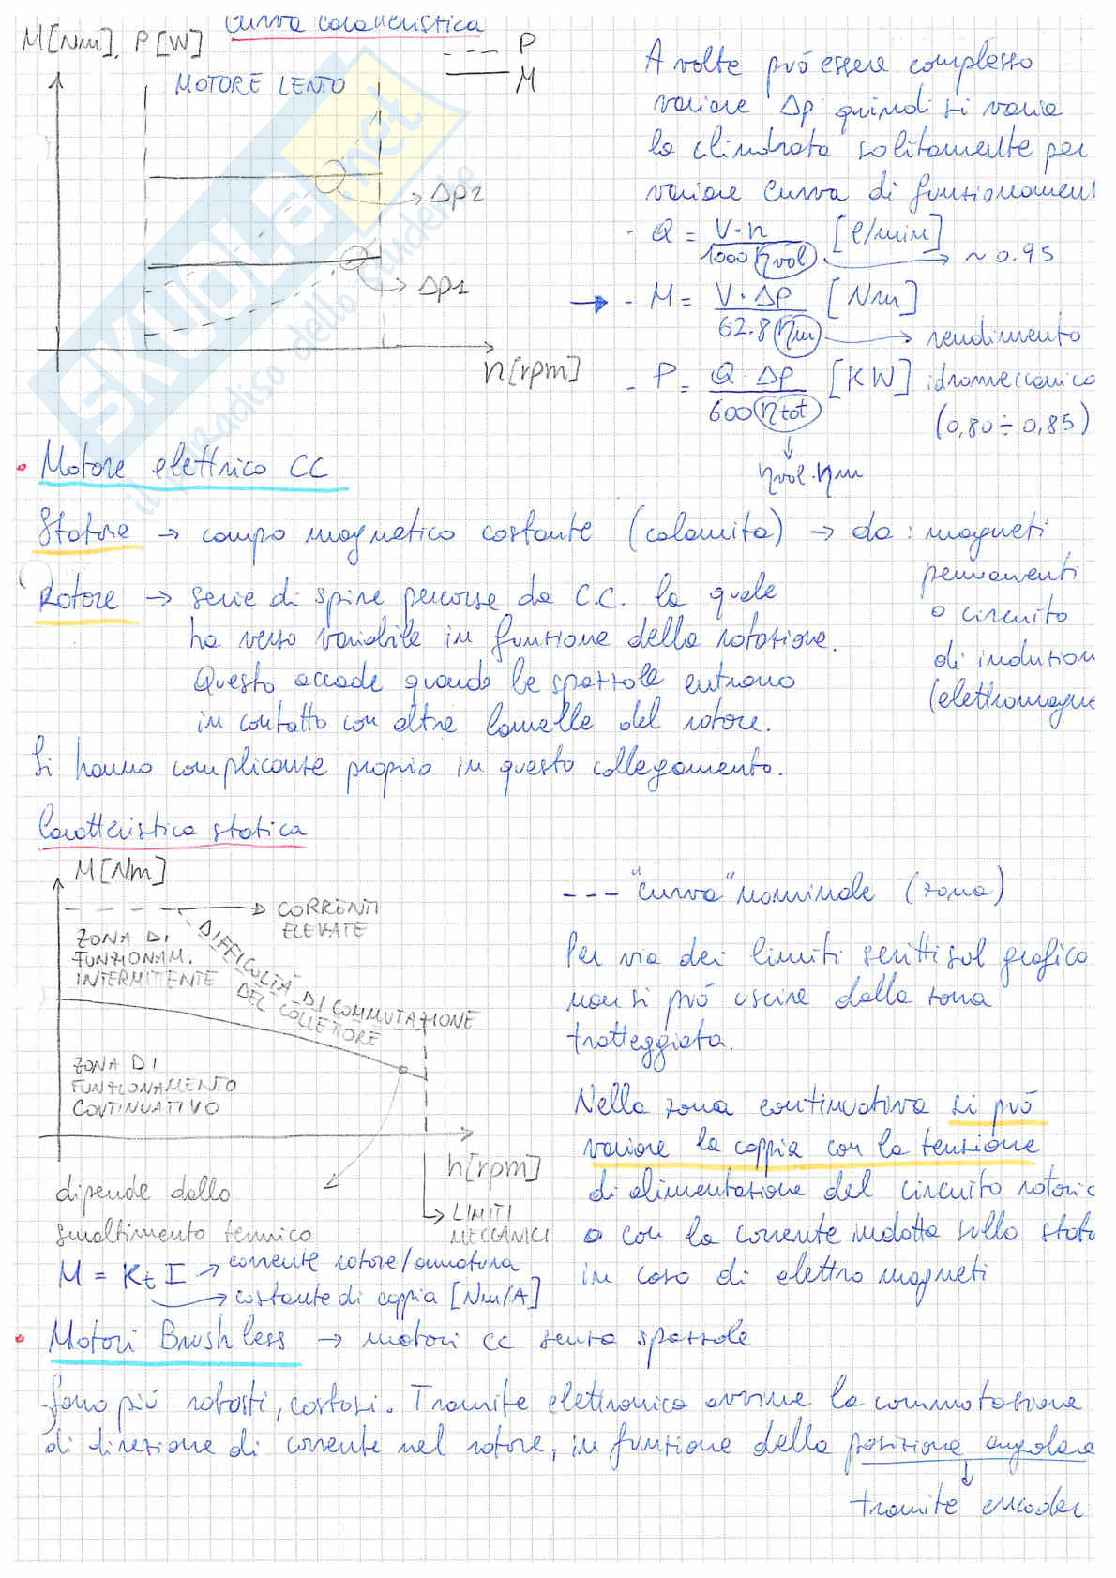 Curva caratteristica
M[Nm], P[W]
--- P
— M
MOTORE LENTO
Δp2
Δp1
n[rpm]
A volte può essere complesso
variare Δp quindi si varia
la cilindrata solitamente per
variare curva di funzionamen
- Q = V·n / 1000 ηvol [l/min] → ~0.95
→ - M = V·Δp / 62.8 ηm [Nm] → rendimento
- P = Q·Δp / 600 ηtot [KW] idromeccanico
(0,80÷0,85)
ηvol·ηm
SKUOLA.net
il paradiso dello studente
• Motore elettrico CC
Statore → campo magnetico costante (calamita) → da: magneti
permanenti
o circuito
di induzion
(elettromagne
Rotore → serie di spire percorse da C.C. la quale
ha verso variabile in funzione della rotazione.
Questo accade quando le spazzole entrano
in contatto con altre lamelle del rotore.
Si hanno complicanze proprio in questo collegamento.
Caratteristica statica
M[Nm]
→ CORRENTI
ELEVATE
ZONA DI
FUNZIONAM.
INTERMITTENTE
DIFFICOLTÀ DI COMMUTAZIONE
DEL COLLETTORE
ZONA DI
FUNZIONAMENTO
CONTINUATIVO
n[rpm]
→ LIMITI
MECCANICI
dipende dallo
smaltimento termico
--- "curva" nominale (zona)
Per via dei limiti scritti sul grafico
non si può uscire dalla zona
tratteggiata.
Nella zona continuativa si può
variare la coppia con la tensione
di alimentazione del circuito rotoric
o con la corrente indotta sullo stato
in caso di elettro magneti
M = Kt I → corrente rotore/armatura
→ costante di coppia [Nm/A]
• Motori Brushless → motori cc senza spazzole
Sono più robusti, costosi. Tramite elettronica avviene la commutazione
di direzione di corrente nel rotore, in funzione della posizione angolare
↓
tramite encoder